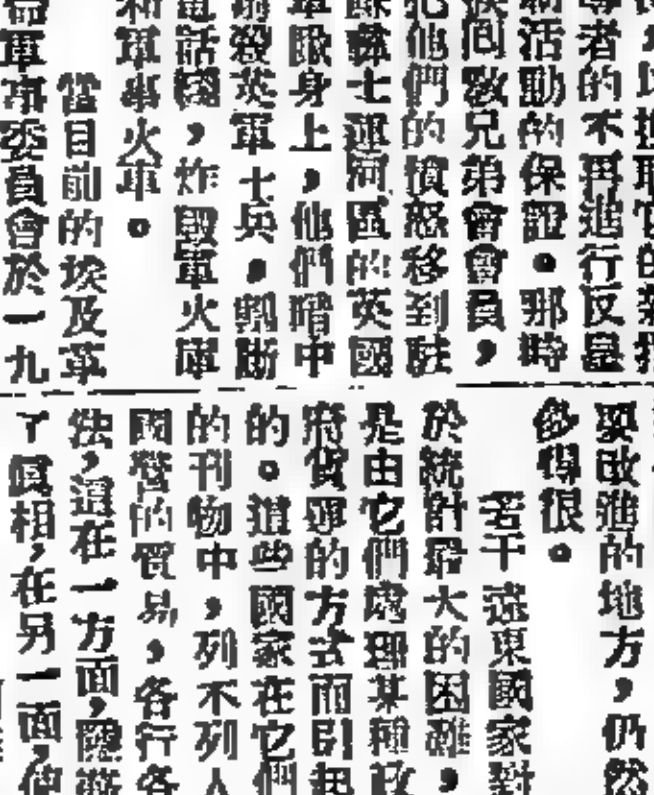 者的不再進行反
和活動的保證。那時
問教兄弟會會員,
犯他們的憤怒移到駐
蘇彝士運河區的英國
軍眼身上,他們暗中
殺英軍士兵,割斷
電話綫,炸毀軍火庫
和軍事火車。
當目前的埃及革
命軍事委員會於一九
要改進的地方,仍然
多得很。
若干遠東國家對
於統計最大的困難,
是由它們處理某種政
府貨運的方式而引起
的。這些國家在它們
的刊物中,列不列入
國營的貿易,各行各
法,這在一方面,隱
了眞相,在另一面,使